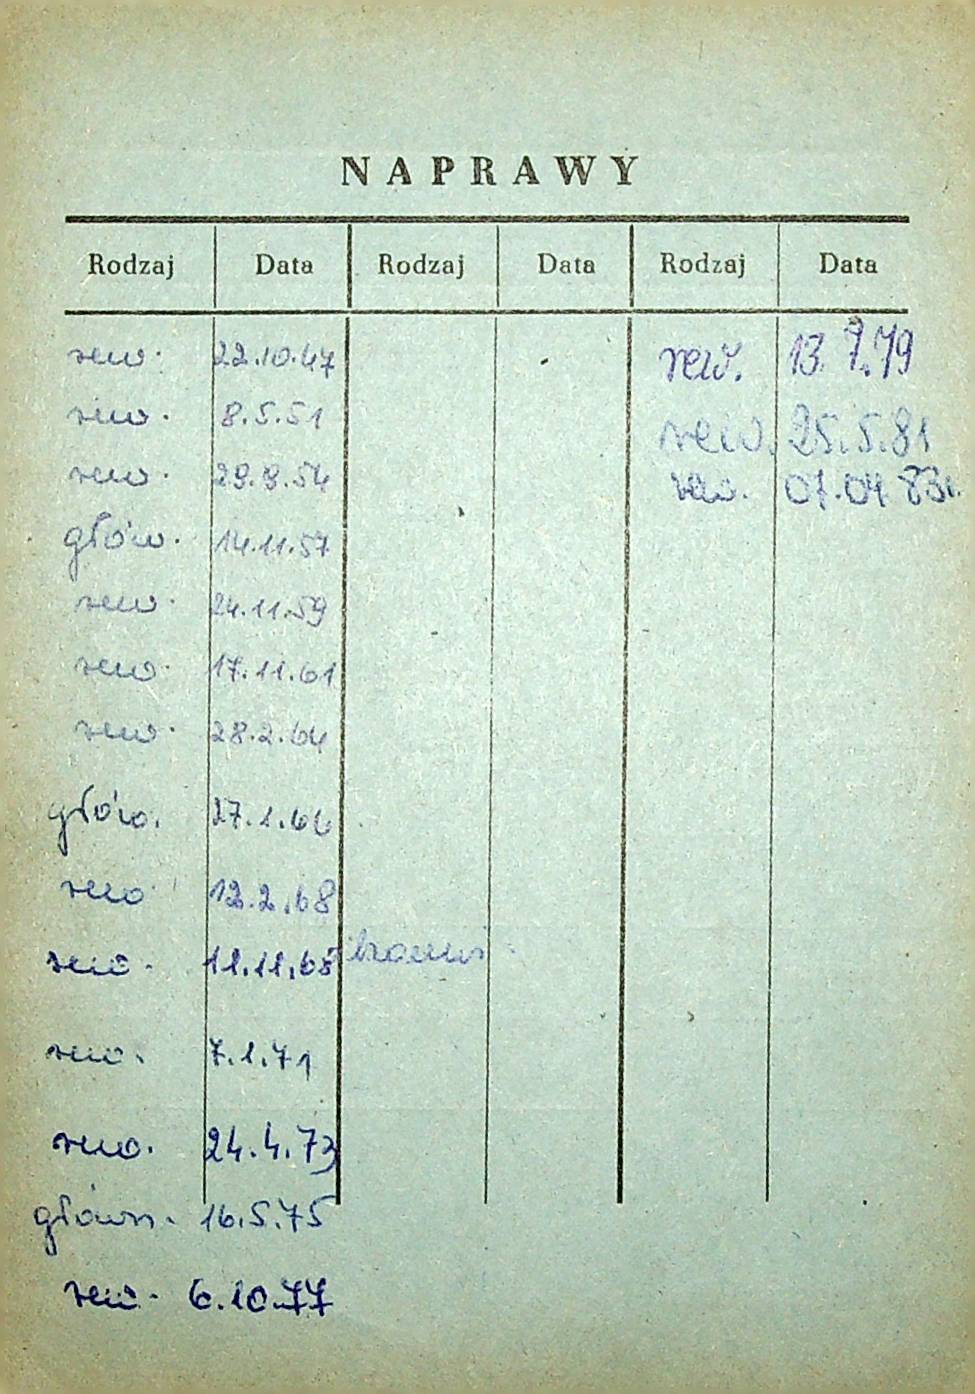 NAPRAWY
Rodzaj Data Rodzaj Data Rodzaj Data
rew. 22.10.47
rew. 8.5.51
rew. 29.9.54
głów. 14.11.57
rew. 24.11.59
rew. 17.11.61
rew. 28.2.64
głów. 27.1.66
rew. 12.2.68
rew. 11.11.68
rew. 7.1.71
rew. 24.4.73
główn. 16.5.75
rew. 6.10.77
rew. 13.7.79
rew. 25.5.81
rew. 07.04.83r.